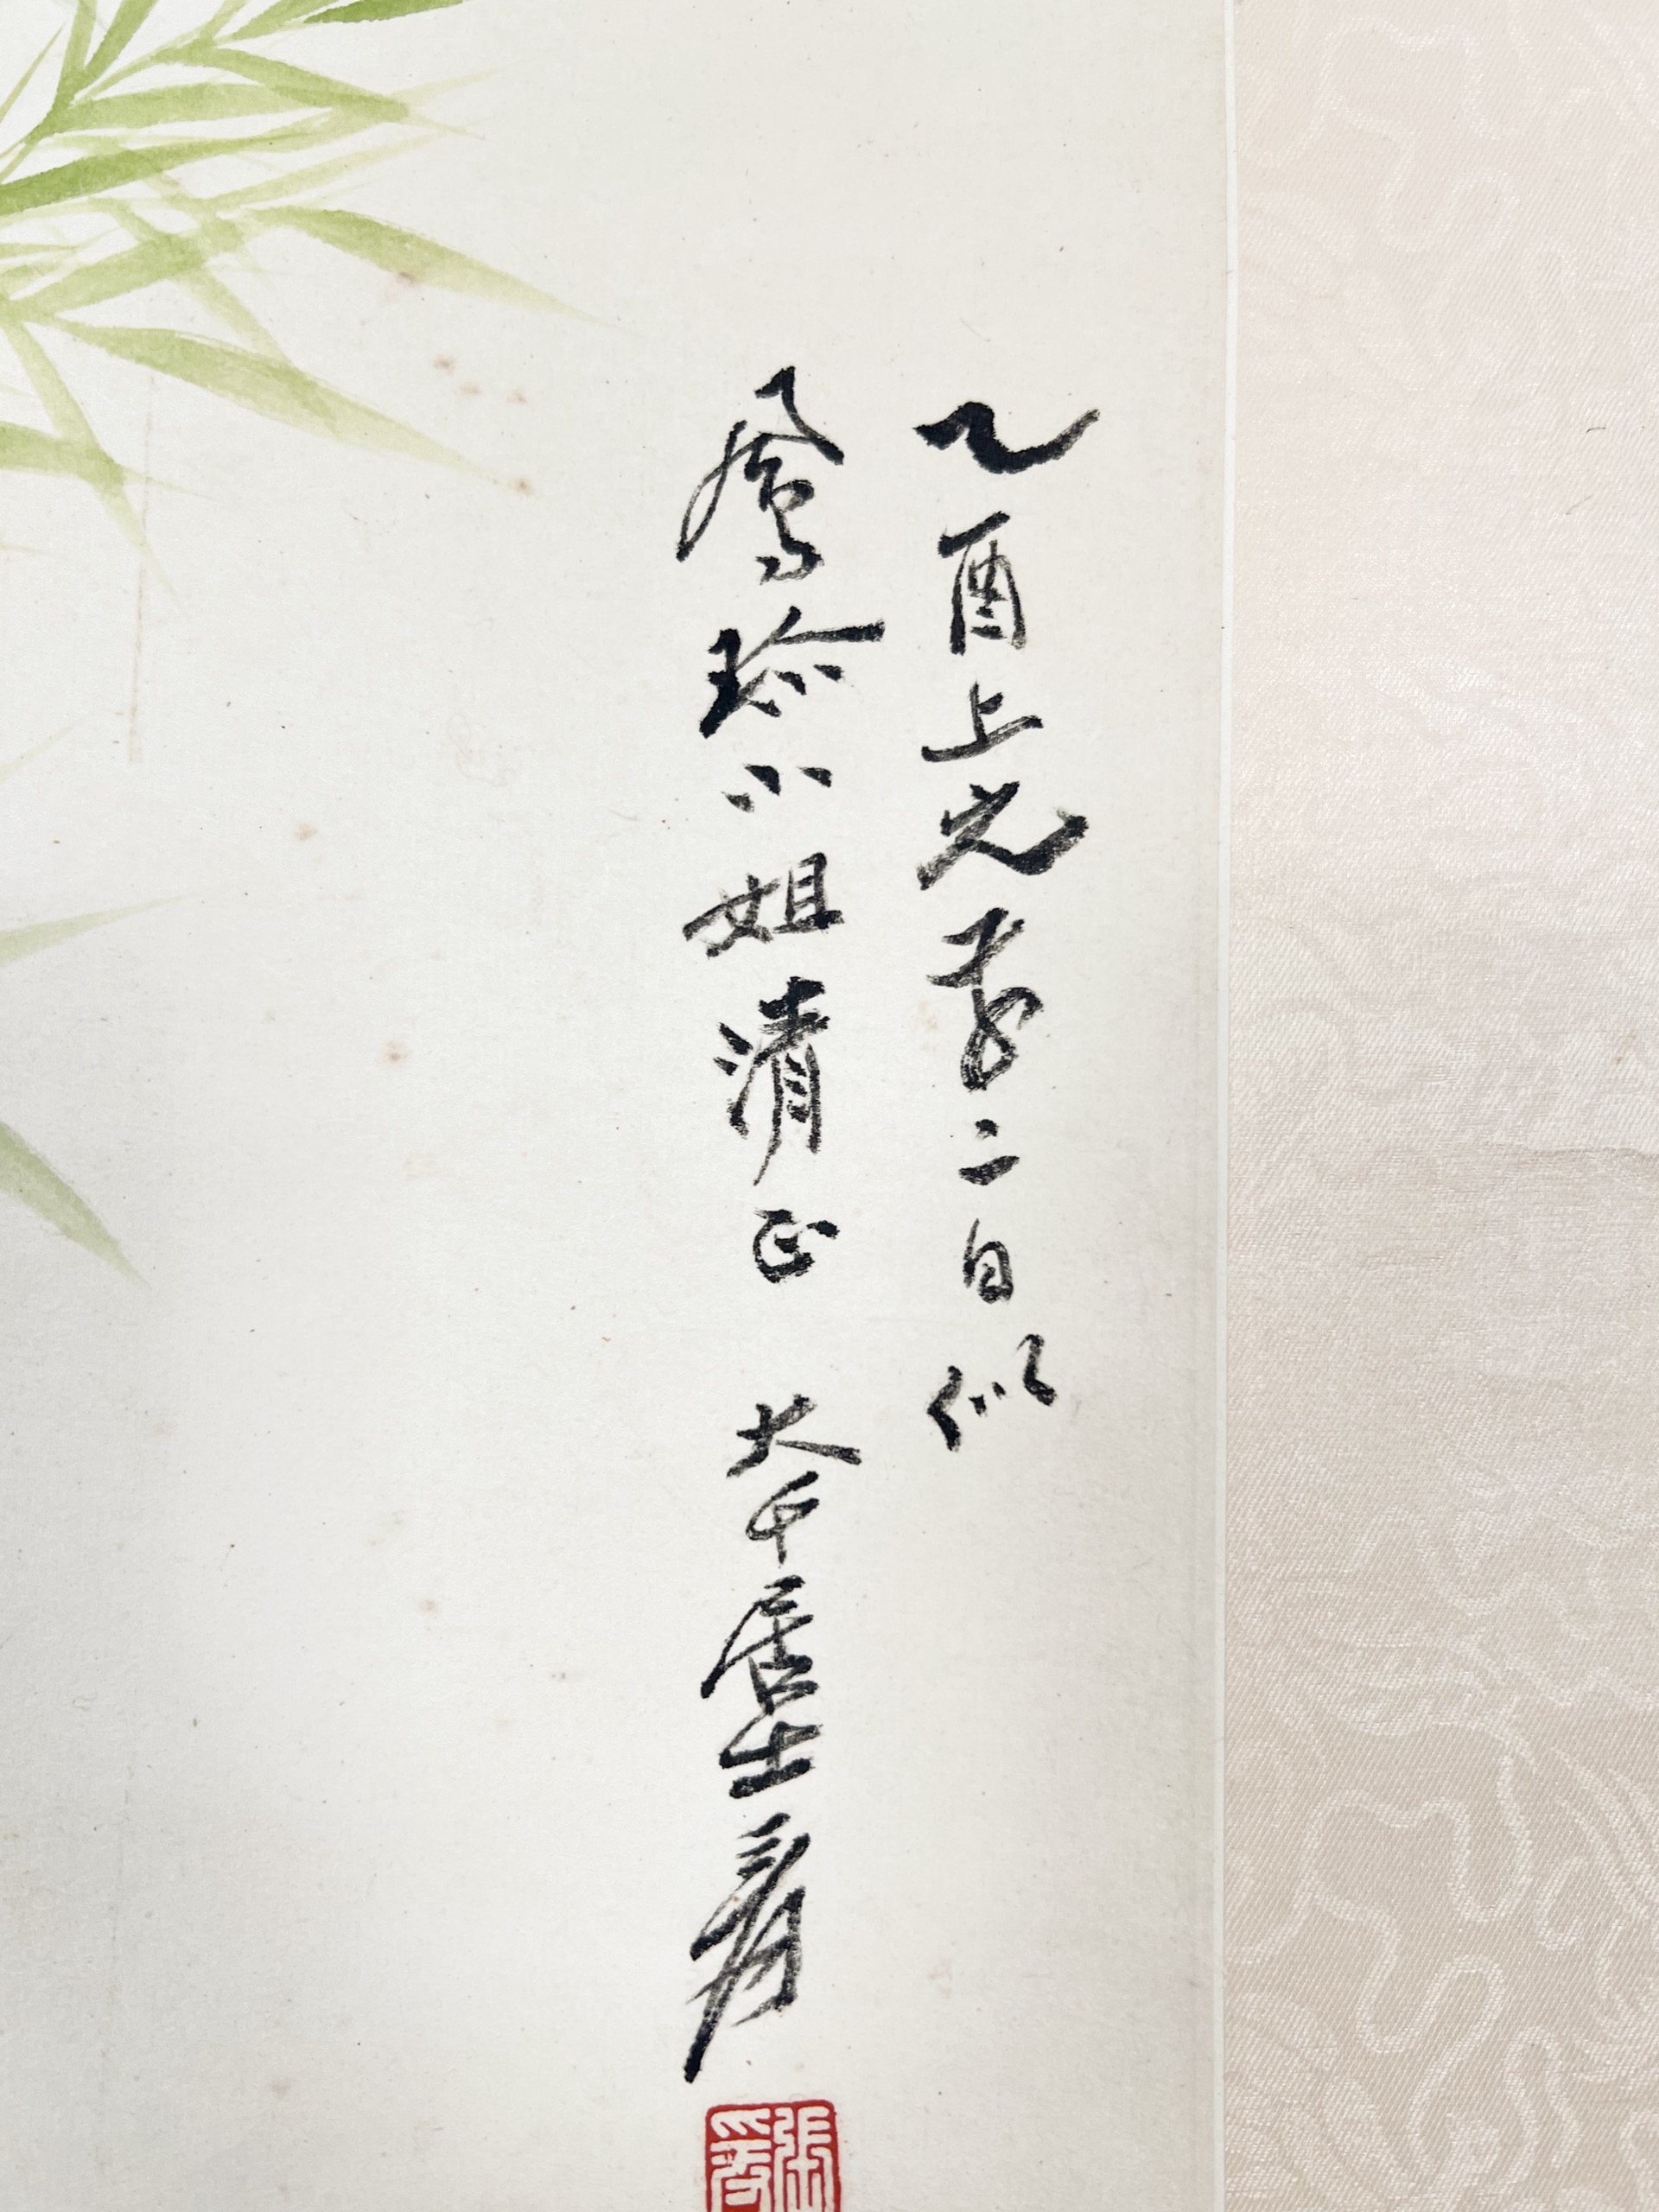 乙酉上元二日似
鳳珎小姐清正 大千居士爰
張爰